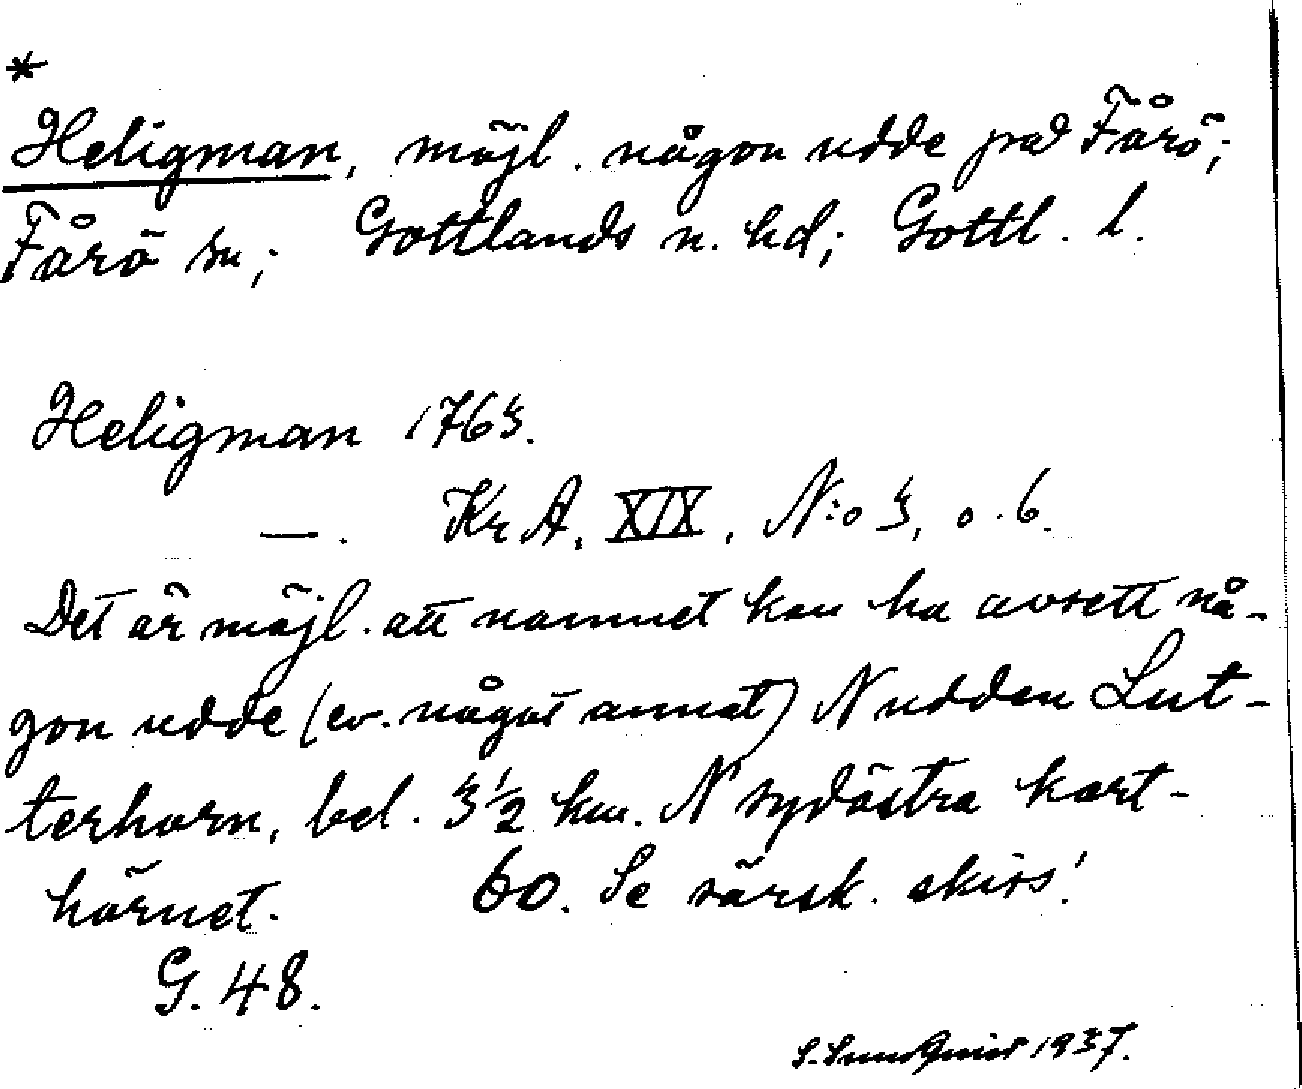 *
Heligman, möjl. någon udde på Fårö;
Fårö sn; Gottlands n. hd; Gottl. l.
Heligman 1763.
—. Kr A, XIX, N:o 3, o. 6.
Det är möjl. att namnet kan ha avsett nå-
gon udde (ev. något annat) N udden Lut-
terhorn, bel. 3 1/2 km. N sydöstra kart-
hörnet. 60. Se särsk. skiss!
G. 48.
S. Sundquist 1937.